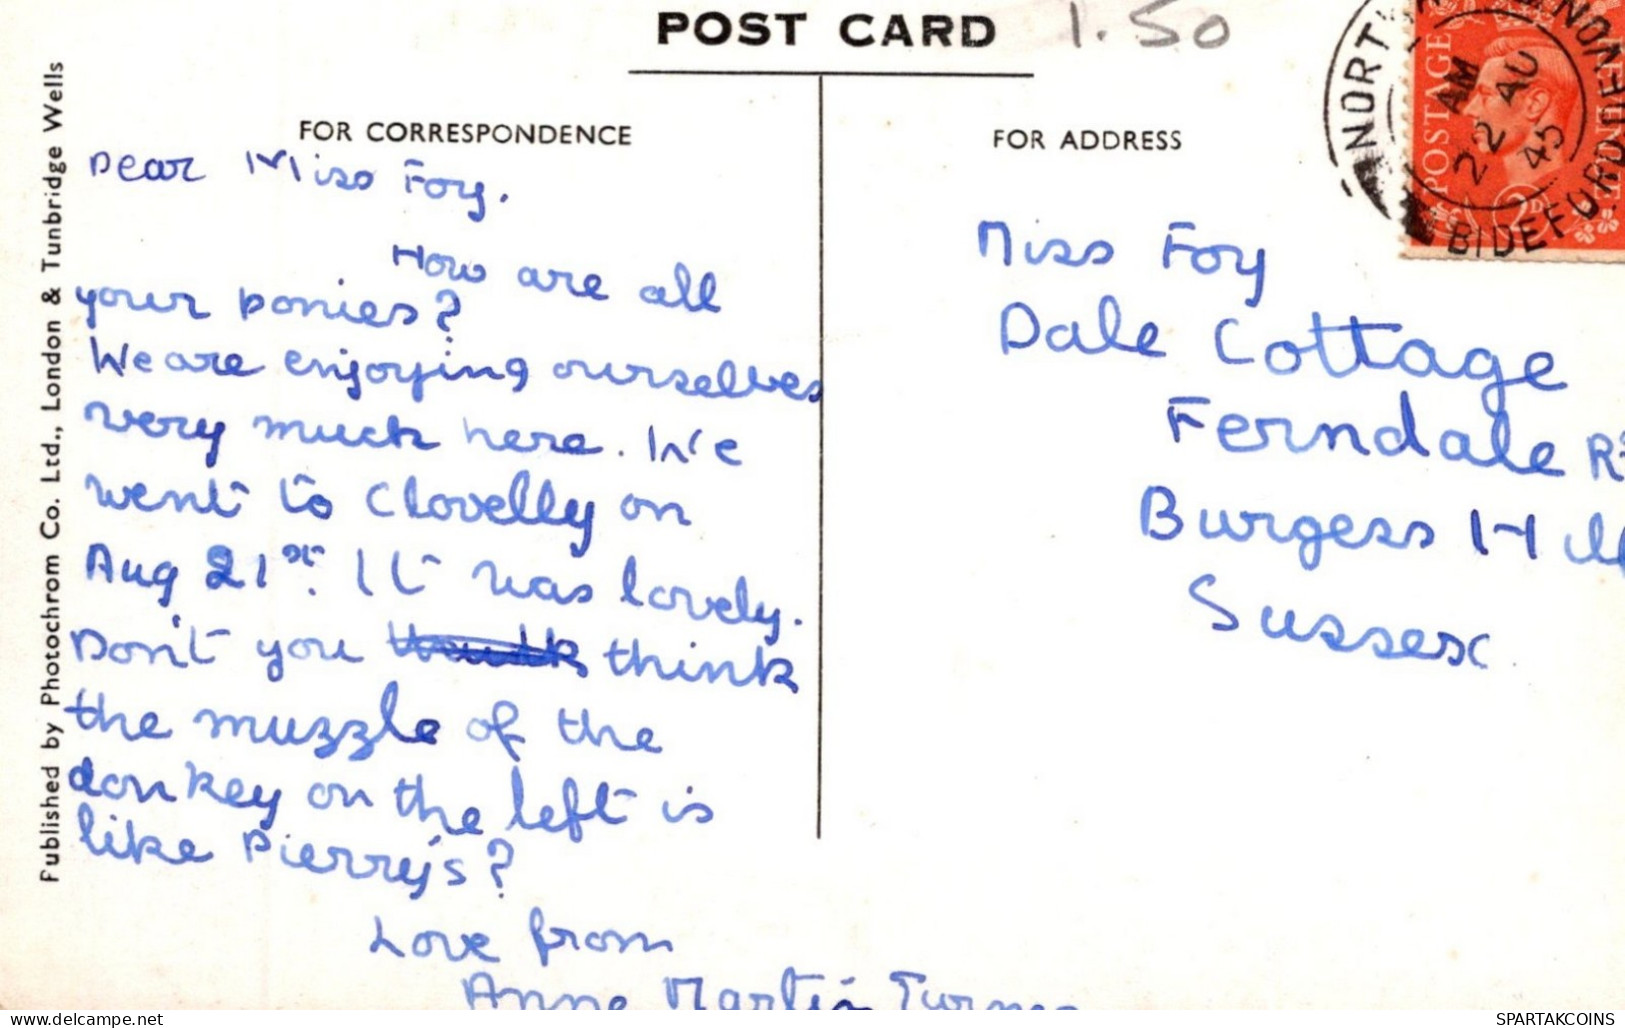 POST CARD 1.50
FOR CORRESPONDENCE
Dear Miss Foy.
How are all
your ponies?
We are enjoying ourselves
very much here. We
went to Clovelly on
Aug 21st. It was lovely.
Don't you think
the muzzle of the
donkey on the left is
like Pierry's?
Love from
Anne Martin Turner
Published by Photochrom Co. Ltd., London & Tunbridge Wells
FOR ADDRESS
Miss Foy
Dale Cottage
Ferndale Rd
Burgess Hill
Sussex
POSTAGE
2D
AM
22 AU
45
BIDEFORD
SPARTAKCOINS
www.delcampe.net